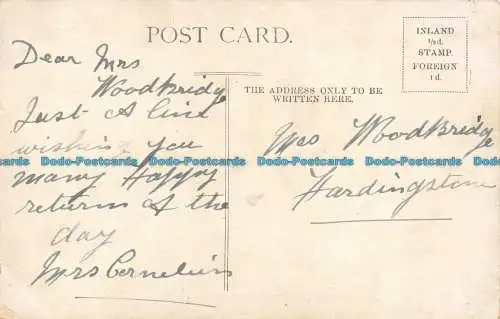 POST CARD.
INLAND
½d.
STAMP.
FOREIGN
1d.
Dear Mrs
Woodbridge
Just A line
wishing you
many Happy
returns of the
day
Mrs Cornelius
THE ADDRESS ONLY TO BE
WRITTEN HERE.
Mrs Woodbridge
Hardingstone
Dodo-Postcards Dodo-Postcards Dodo-Postcards Dodo-Postcards
Dodo-Postcards Dodo-Postcards Dodo-Postcards Dodo-Postcards